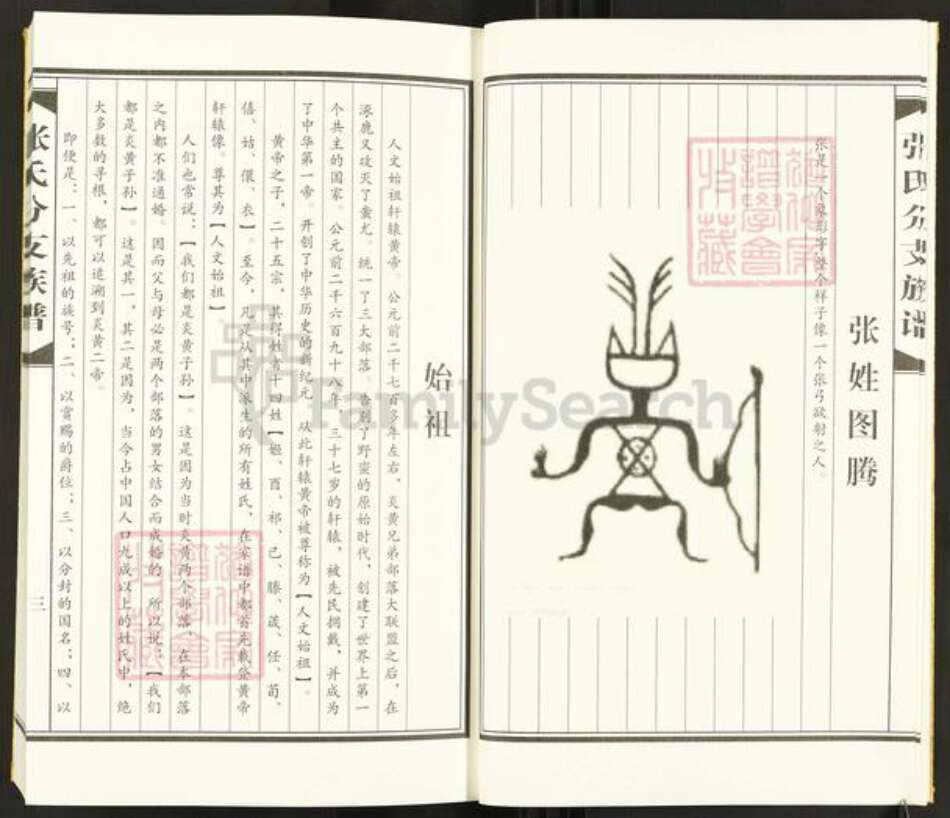 张氏分支族谱
张姓图腾
张是一个象形字整个样子像一个张弓欲射之人。
始祖
人文始祖轩辕黄帝。公元前二千七百多年左右，炎黄兄弟部落大联盟之后，在
涿鹿又攻灭了蚩尤。统一了三大部落。告别了野蛮的原始时代，创建了世界上第一
个共主的国家。公元前二千六百九十八年，三十七岁的轩辕，被先民拥戴，并成为
了中华第一帝。开创了中华历史的新纪元。从此轩辕黄帝被尊称为【人文始祖】。
黄帝之子，二十五宗，其得姓者十四姓【姬、酉、祁、己、滕、葴、任、荀、
僖、姞、儇、衣】。至今，凡是从其中派生的所有姓氏，在家谱中都首先载登黄帝
轩辕像。尊其为【人文始祖】
人们也常说：【我们都是炎黄子孙】。这是因为当时炎黄两个部落，在本部落
之内都不准通婚。因而父与母必是两个部落的男女结合而成婚的。所以说：【我们
都是炎黄子孙】。这是其一，其二是因为，当今占中国人口九成以上的姓氏中，绝
大多数的寻根，都可以追溯到炎黄二帝。
即便是：一、以先祖的族号；二、以赏赐的爵位；三、以分封的国名；四、以
张氏分支族谱
三
FamilySearch